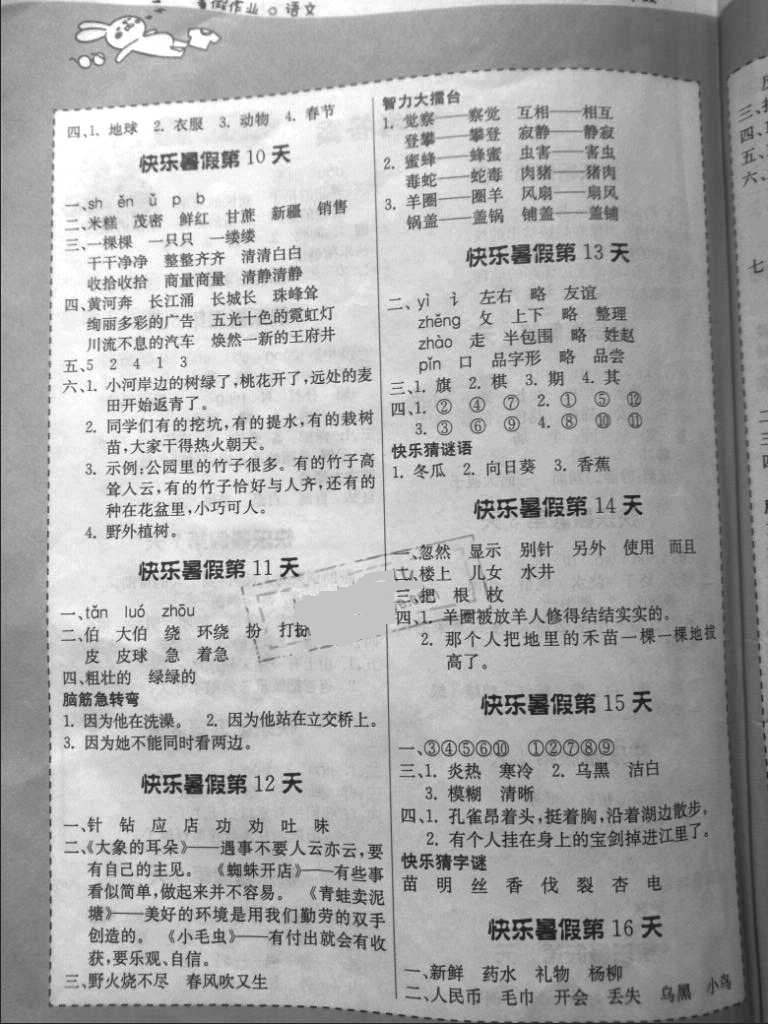 暑假作业 语文
四、1. 地球 2. 衣服 3. 动物 4. 春节
快乐暑假第 10 天
一、sh ěn ǔ p b
二、米糕 茂密 鲜红 甘蔗 新疆 销售
三、一棵棵 一只只 一缕缕
干干净净 整整齐齐 清清白白
收拾收拾 商量商量 清静清静
四、黄河奔 长江涌 长城长 珠峰耸
绚丽多彩的广告 五光十色的霓虹灯
川流不息的汽车 焕然一新的王府井
五、5 2 4 1 3
六、1. 小河岸边的树绿了,桃花开了,远处的麦
田开始返青了。
2. 同学们有的挖坑,有的提水,有的栽树
苗,大家干得热火朝天。
3. 示例:公园里的竹子很多。有的竹子高
耸入云,有的竹子恰好与人齐,还有的
种在花盆里,小巧可人。
4. 野外植树。
快乐暑假第 11 天
一、tǎn luó zhōu
二、伯 大伯 绕 环绕 扮 打扮
皮 皮球 急 着急
四、粗壮的 绿绿的
脑筋急转弯
1. 因为他在洗澡。 2. 因为他站在立交桥上。
3. 因为她不能同时看两边。
快乐暑假第 12 天
一、针 钻 应 店 功 劝 吐 味
二、《大象的耳朵》——遇事不要人云亦云,要
有自己的主见。 《蜘蛛开店》——有些事
看似简单,做起来并不容易。 《青蛙卖泥
塘》——美好的环境是用我们勤劳的双手
创造的。 《小毛虫》——有付出就会有收
获,要乐观、自信。
三、野火烧不尽 春风吹又生
智力大擂台
1. 觉察——察觉 互相——相互
登攀——攀登 寂静——静寂
2. 蜜蜂——蜂蜜 虫害——害虫
毒蛇——蛇毒 肉猪——猪肉
3. 羊圈——圈羊 风扇——扇风
锅盖——盖锅 铺盖——盖铺
快乐暑假第 13 天
二、yì 讠 左右 略 友谊
zhěng 攵 上下 略 整理
zhào 走 半包围 略 姓赵
pǐn 口 品字形 略 品尝
三、1. 旗 2. 棋 3. 期 4. 其
四、1. ② ④ ⑦ 2. ① ⑤ ⑫
3. ③ ⑥ ⑨ 4. ⑧ ⑩ ⑪
快乐猜谜语
1. 冬瓜 2. 向日葵 3. 香蕉
快乐暑假第 14 天
一、忽然 显示 别针 另外 使用 而且
二、楼上 儿女 水井
三、把 根 枚
四、1. 羊圈被放羊人修得结结实实的。
2. 那个人把地里的禾苗一棵一棵地拔
高了。
快乐暑假第 15 天
一、③④⑤⑥⑩ ①②⑦⑧⑨
三、1. 炎热 寒冷 2. 乌黑 洁白
3. 模糊 清晰
四、1. 孔雀昂着头,挺着胸,沿着湖边散步。
2. 有个人挂在身上的宝剑掉进江里了。
快乐猜字谜
苗 明 丝 香 伐 裂 杏 电
快乐暑假第 16 天
一、新鲜 药水 礼物 杨柳
二、人民币 毛巾 开会 丢失 乌黑 小鸟
三、
四、
五、
六、
七
二
三
四